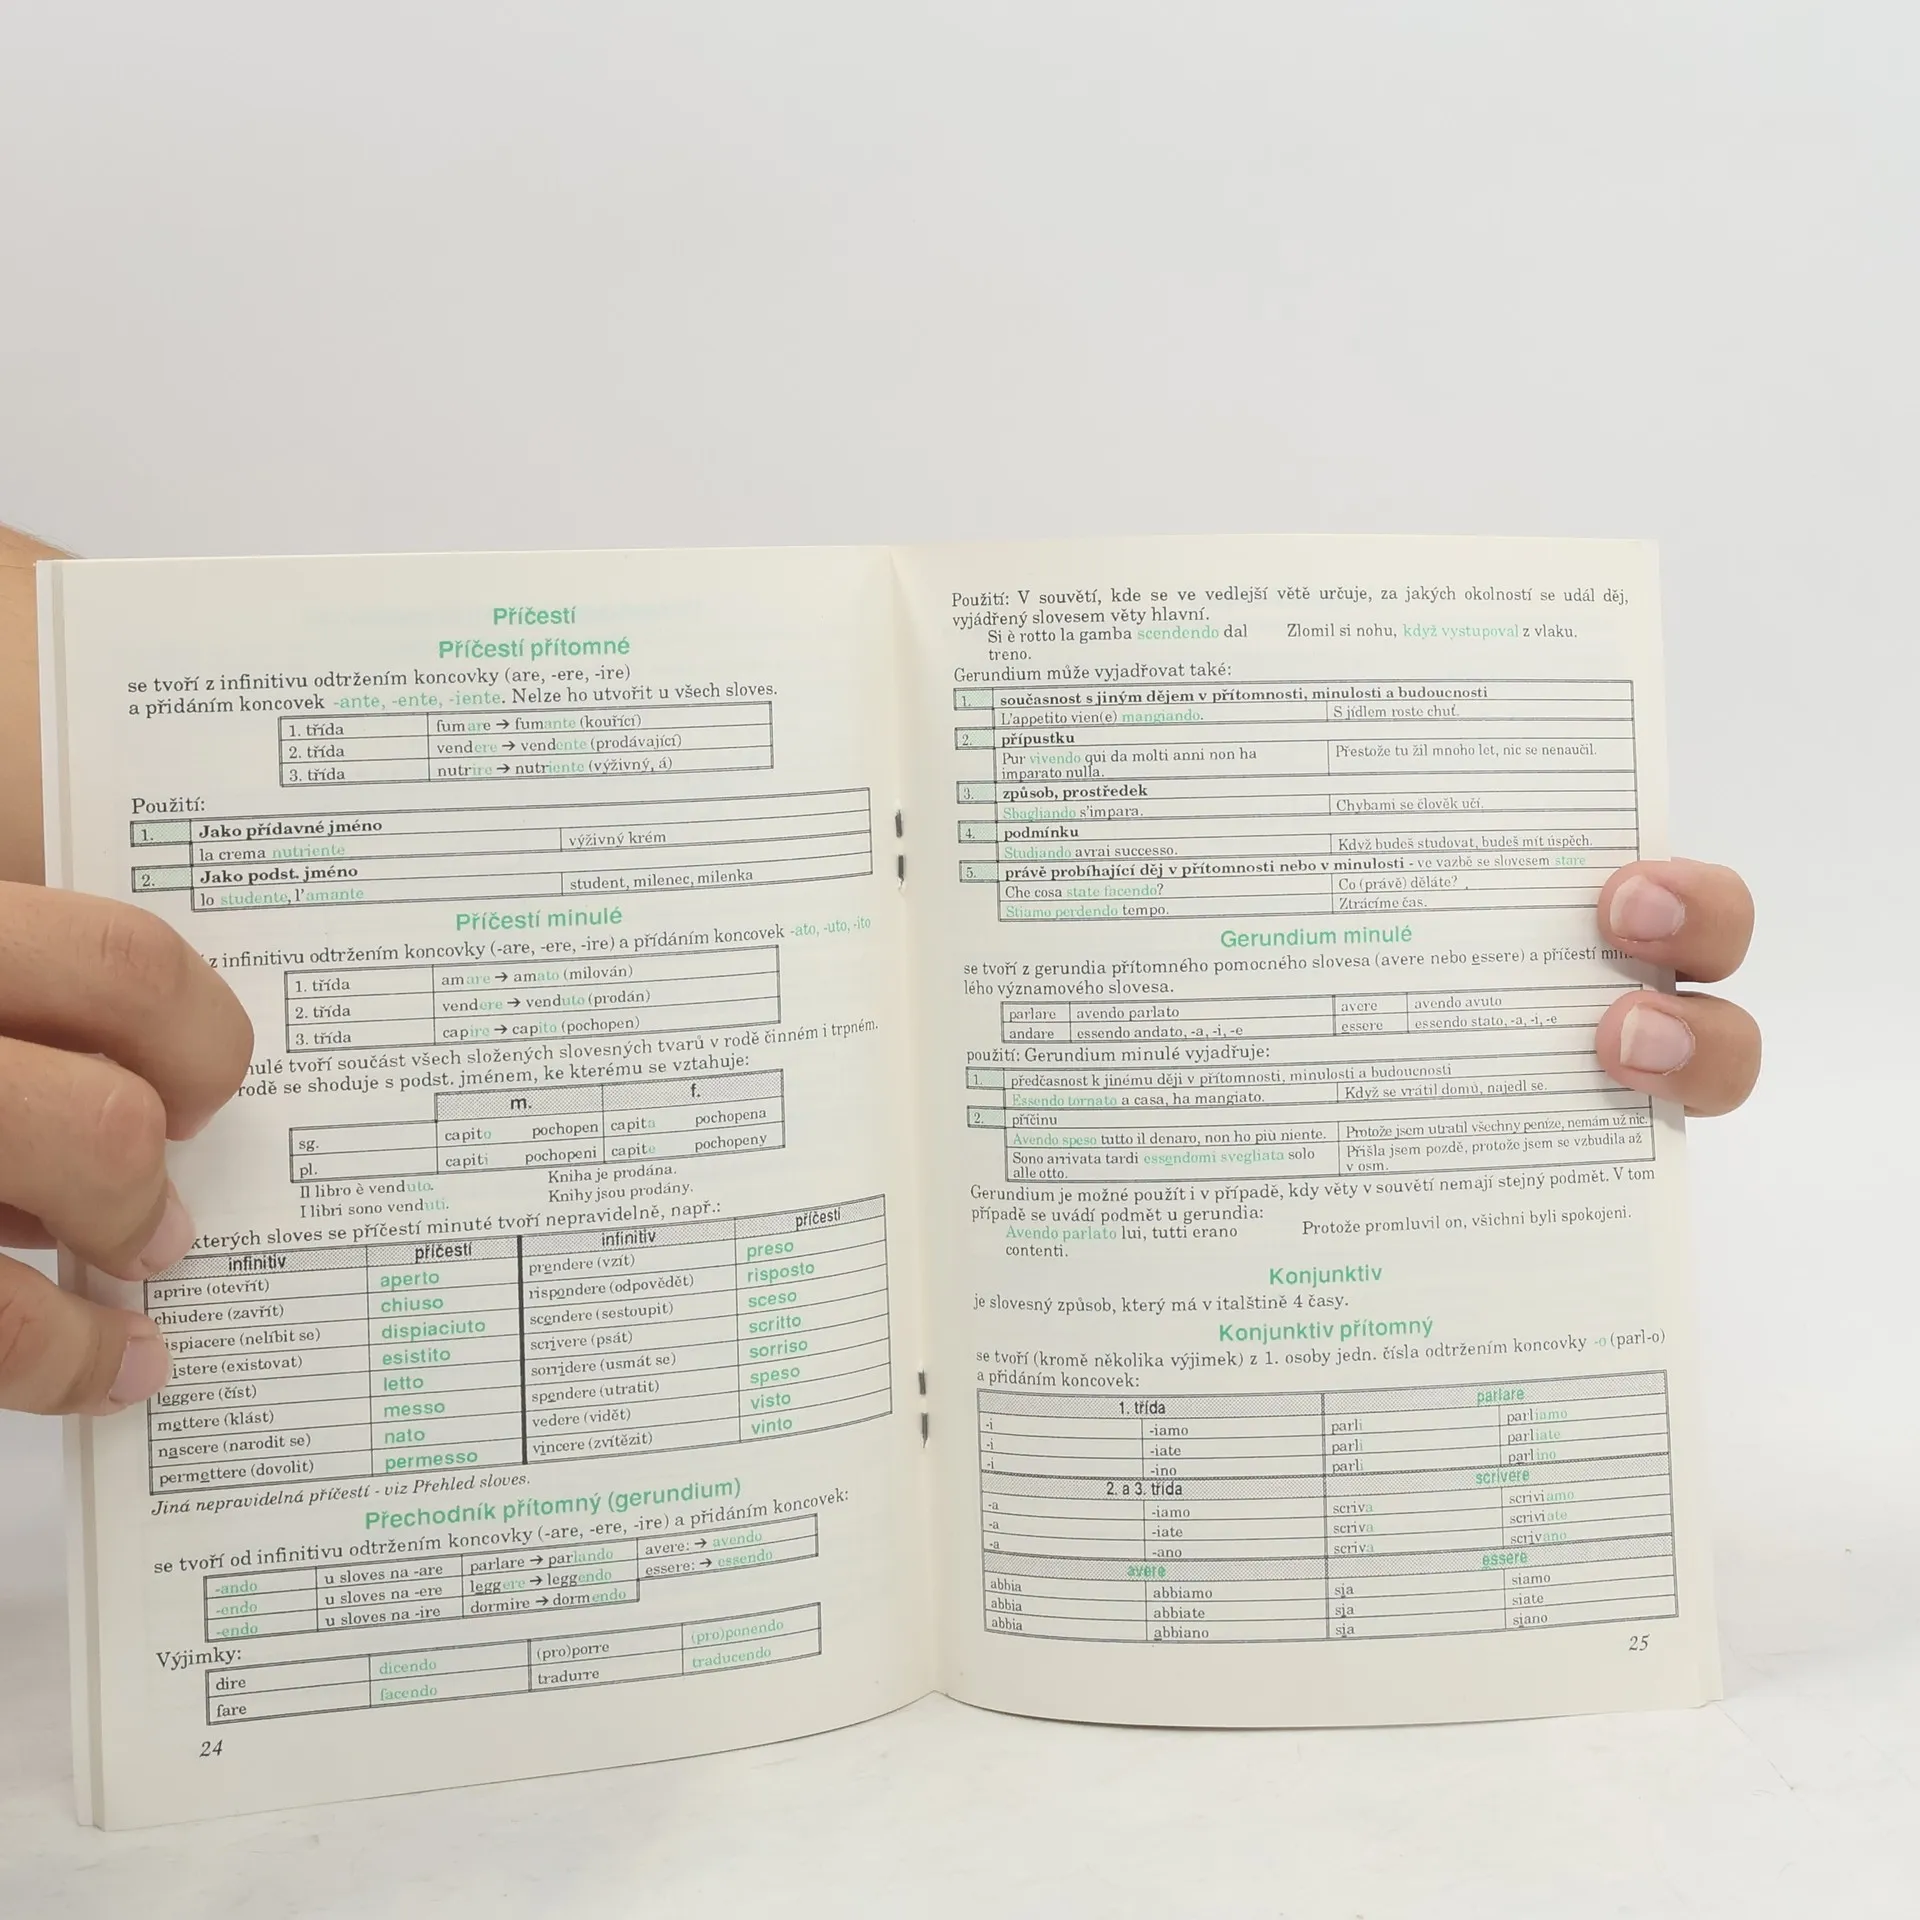 Příčestí
Příčestí přítomné
se tvoří z infinitivu odtržením koncovky (are, -ere, -ire)
a přidáním koncovek -ante, -ente, -iente. Nelze ho utvořit u všech sloves.
1. třída fumare → fumante (kouřící)
2. třída vendere → vendente (prodávající)
3. třída nutrire → nutriente (výživný, á)
Použití:
1. Jako přídavné jméno
la crema nutriente výživný krém
2. Jako podst. jméno
lo studente, l'amante student, milenec, milenka
Příčestí minulé
z infinitivu odtržením koncovky (-are, -ere, -ire) a přídáním koncovek -ato, -uto, -ito
1. třída amare → amato (milován)
2. třída vendere → venduto (prodán)
3. třída capire → capito (pochopen)
nulé tvoří součást všech složených slovesných tvarů v rodě činném i trpném.
rodě se shoduje s podst. jménem, ke kterému se vztahuje:
m. f.
sg. capito pochopen capita pochopena
pl. capiti pochopeni capite pochopeny
Il libro è venduto. Kniha je prodána.
I libri sono venduti. Knihy jsou prodány.
kterých sloves se příčestí minuté tvoří nepravidelně, např.:
infinitiv příčestí infinitiv příčestí
aprire (otevřít) aperto prendere (vzít) preso
chiudere (zavřít) chiuso rispondere (odpovědět) risposto
ispiacere (nelíbit se) dispiaciuto scendere (sestoupit) sceso
istere (existovat) esistito scrivere (psát) scritto
leggere (číst) letto sorridere (usmát se) sorriso
mettere (klást) messo spendere (utratit) speso
nascere (narodit se) nato vedere (vidět) visto
permettere (dovolit) permesso vincere (zvítězit) vinto
Jiná nepravidelná příčestí - viz Přehled sloves.
Přechodník přítomný (gerundium)
se tvoří od infinitivu odtržením koncovky (-are, -ere, -ire) a přidáním koncovek:
-ando u sloves na -are parlare → parlando avere: → avendo
-endo u sloves na -ere leggere → leggendo essere: → essendo
-endo u sloves na -ire dormire → dormendo
Výjimky:
dire dicendo (pro)porre (pro)ponendo
fare facendo tradurre traducendo
24
Použití: V souvětí, kde se ve vedlejší větě určuje, za jakých okolností se udál děj,
vyjádřený slovesem věty hlavní.
Si è rotto la gamba scendendo dal Zlomil si nohu, když vystupoval z vlaku.
treno.
Gerundium může vyjadřovat také:
1. současnost s jiným dějem v přítomnosti, minulosti a budoucnosti
L'appetito vien(e) mangiando. S jídlem roste chuť.
2. přípustku
Pur vivendo qui da molti anni non ha Přestože tu žil mnoho let, nic se nenaučil.
imparato nulla.
3. způsob, prostředek
Sbagliando s'impara. Chybami se člověk učí.
4. podmínku
Studiando avrai successo. Když budeš studovat, budeš mít úspěch.
5. právě probíhající děj v přítomnosti nebo v minulosti - ve vazbě se slovesem stare
Che cosa state facendo? Co (právě) děláte?
Stiamo perdendo tempo. Ztrácíme čas.
Gerundium minulé
se tvoří z gerundia přítomného pomocného slovesa (avere nebo essere) a příčestí min
lého významového slovesa.
parlare avendo parlato avere avendo avuto
andare essendo andato, -a, -i, -e essere essendo stato, -a, -i, -e
použití: Gerundium minulé vyjadřuje:
1. předčasnost k jinému ději v přítomnosti, minulosti a budoucnosti
Essendo tornato a casa, ha mangiato. Když se vrátil domů, najedl se.
2. příčinu
Avendo speso tutto il denaro, non ho più niente. Protože jsem utratil všechny peníze, nemám už nic.
Sono arrivata tardi essendomi svegliata solo Přišla jsem pozdě, protože jsem se vzbudila až
alle otto. v osm.
Gerundium je možné použít i v případě, kdy věty v souvětí nemají stejný podmět. V tom
případě se uvádí podmět u gerundia:
Avendo parlato lui, tutti erano Protože promluvil on, všichni byli spokojeni.
contenti.
Konjunktiv
je slovesný způsob, který má v italštině 4 časy.
Konjunktiv přítomný
se tvoří (kromě několika výjimek) z 1. osoby jedn. čísla odtržením koncovky -o (parl-o)
a přidáním koncovek:
1. třída parlare
-i -iamo parli parliamo
-i -iate parli parliate
-i -ino parli parlino
2. a 3. třída scrivere
-a -iamo scriva scriviamo
-a -iate scriva scriviate
-a -ano scriva scrivano
avere essere
abbia abbiamo sia siamo
abbia abbiate sia siate
abbia abbiano sia siano
25